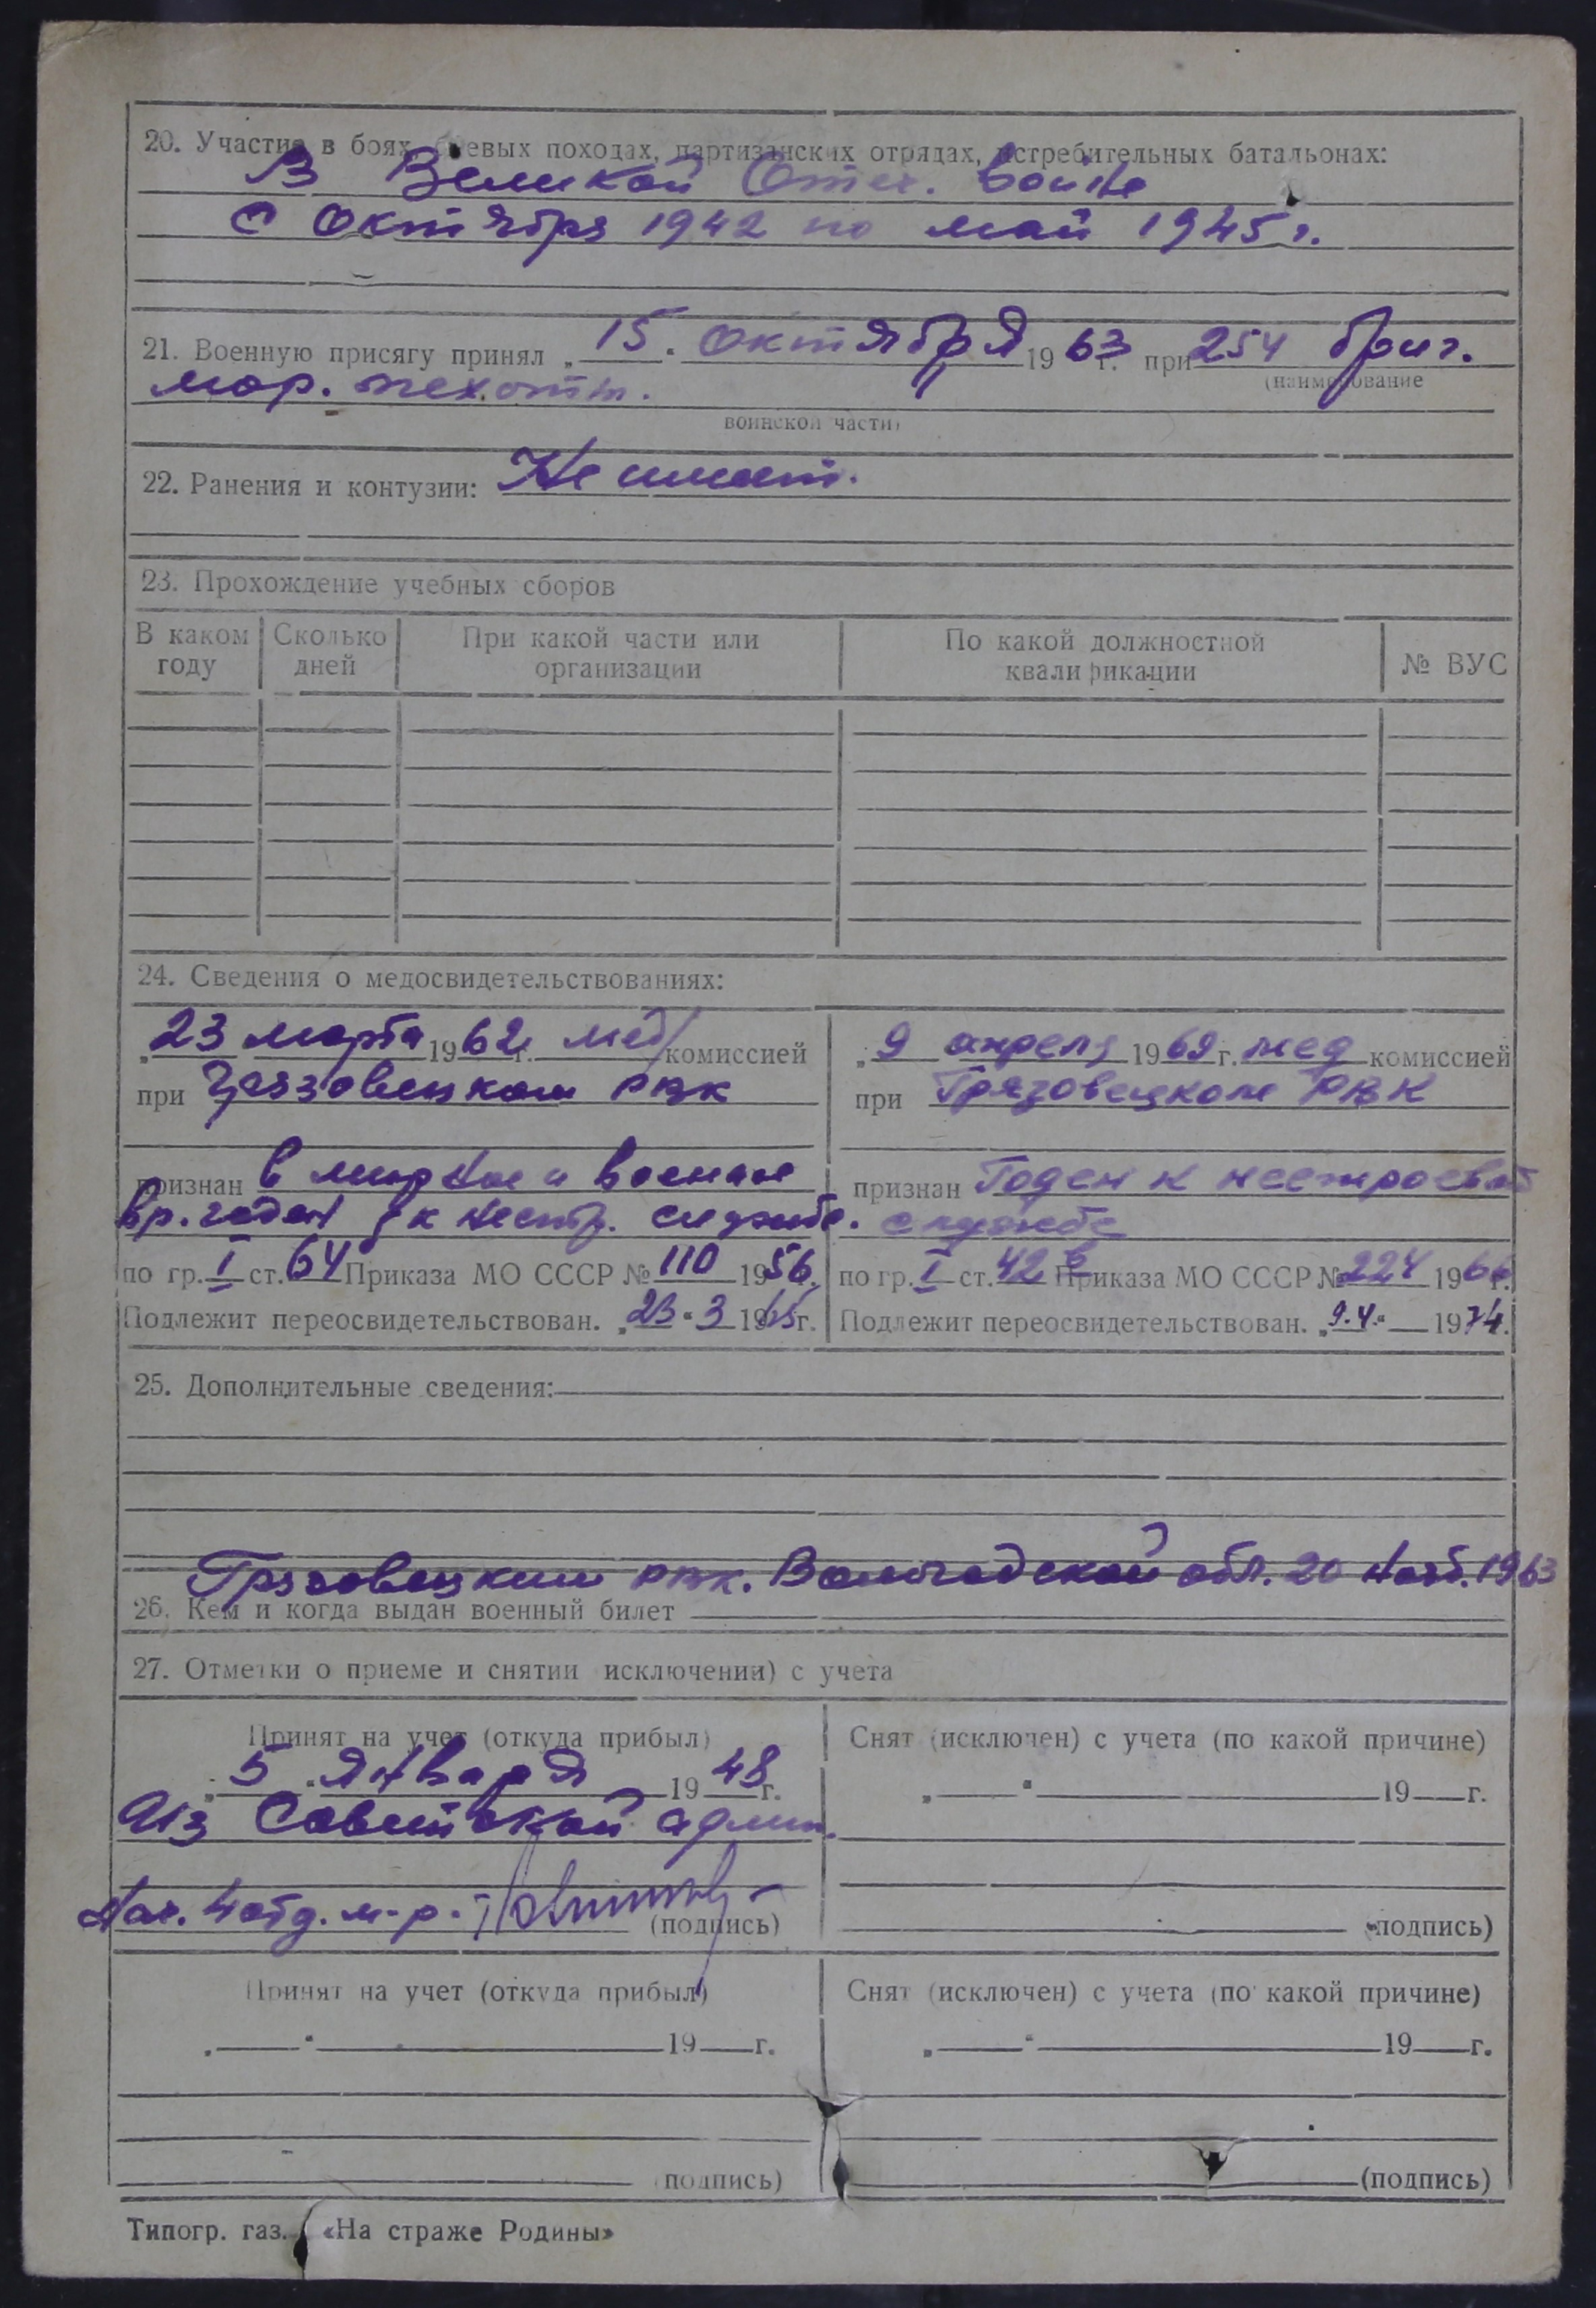 20. Участие в боях, боевых походах, партизанских отрядах, истребительных батальонах:
В Великой Отеч. войне
с Октября 1942 по май 1945 г.
21. Военную присягу принял „15“ Октября 1963 г. при 254 бриг.
(наименование
мор. пехоты.
воинской части)
22. Ранения и контузии: Не имеет.
23. Прохождение учебных сборов
В каком году
Сколько дней
При какой части или организации
По какой должностной квалификации
№ ВУС
24. Сведения о медосвидетельствованиях:
„23 марта 1962 г. мед комиссией
при Грязовецком РВК
признан в мирное и военное
вр. годен к нестр. службе.
по гр. I ст. 64 Приказа МО СССР № 110 1956 г.
Подлежит переосвидетельствован. „23“ 3 1965 г.
„9 апреля 1969 г. мед комиссией
при Грязовецком РВК
признан Годен к нестроевой
службе
по гр. I ст. 42 в Приказа МО СССР № 224 1966 г.
Подлежит переосвидетельствован. „9.4.“ 1974.
25. Дополнительные сведения:
Грязовецким рвк. Вологодской обл. 20 Нояб. 1963
26. Кем и когда выдан военный билет
27. Отметки о приеме и снятии исключении) с учета
Принят на учет (откуда прибыл)
„5“ Января 1948 г.
Из Советской армии.
Нач. 4 отд. м-р.
(подпись)
Снят (исключен) с учета (по какой причине)
„ “ 19 г.
(подпись)
Принят на учет (откуда прибыл)
„ “ 19 г.
(подпись)
Снят (исключен) с учета (по какой причине)
„ “ 19 г.
(подпись)
Типогр. газ. «На страже Родины»